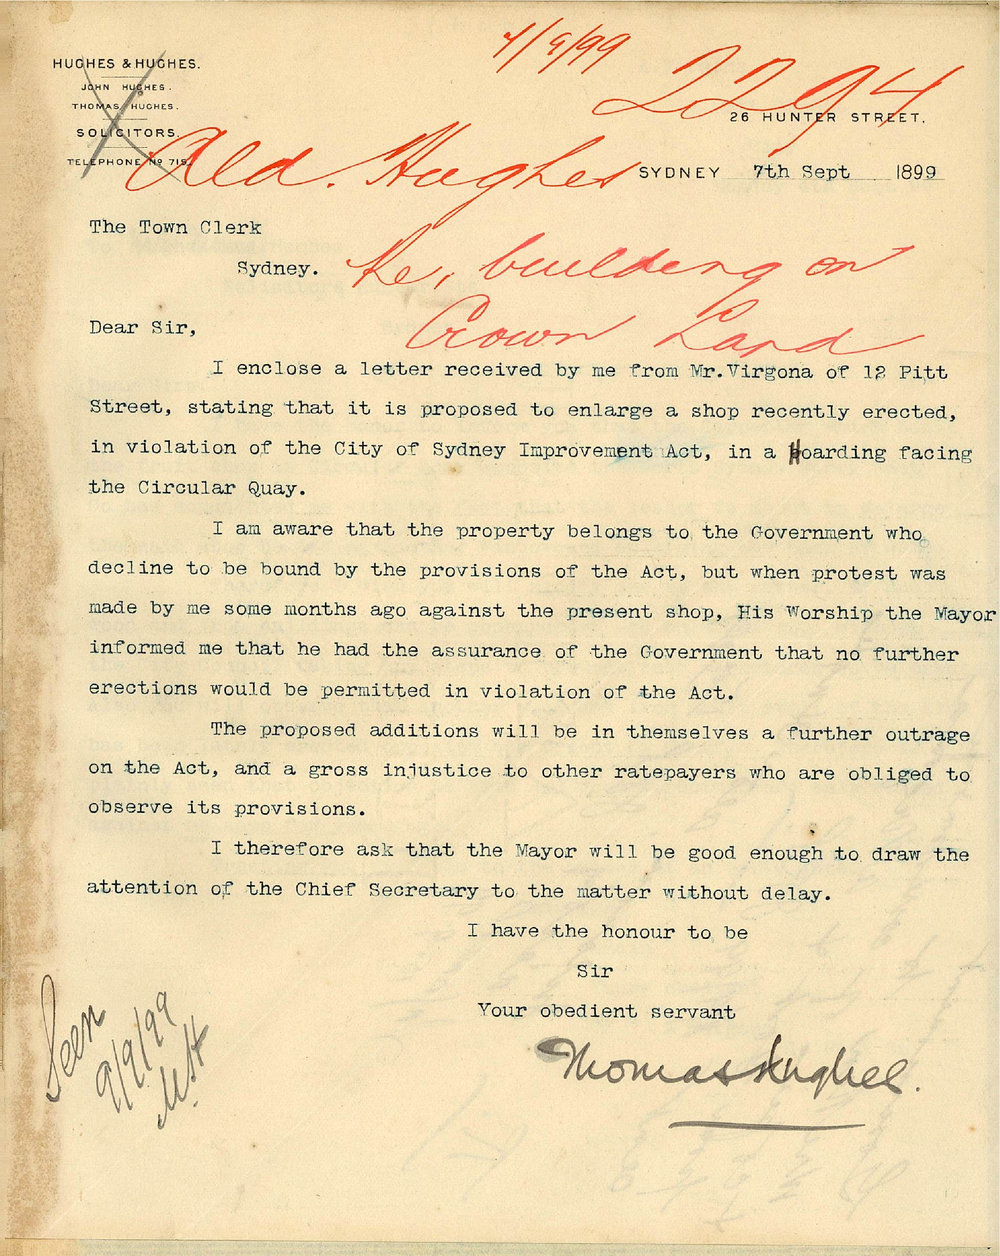 7/9/99
2294
HUGHES & HUGHES.
JOHN HUGHES.
THOMAS HUGHES.
SOLICITORS.
TELEPHONE No 715.
26 HUNTER STREET.
Ald. Hughes
SYDNEY 7th Sept 1899
The Town Clerk
Sydney.
Re, building on
Crown Land
Dear Sir,
I enclose a letter received by me from Mr.Virgona of 12 Pitt
Street, stating that it is proposed to enlarge a shop recently erected,
in violation of the City of Sydney Improvement Act, in a Hoarding facing
the Circular Quay.
I am aware that the property belongs to the Government who
decline to be bound by the provisions of the Act, but when protest was
made by me some months ago against the present shop, His Worship the Mayor
informed me that he had the assurance of the Government that no further
erections would be permitted in violation of the Act.
The proposed additions will be in themselves a further outrage
on the Act, and a gross injustice to other ratepayers who are obliged to
observe its provisions.
I therefore ask that the Mayor will be good enough to draw the
attention of the Chief Secretary to the matter without delay.
I have the honour to be
Sir
Your obedient servant
Thomas Hughes.
Seen
9/9/99